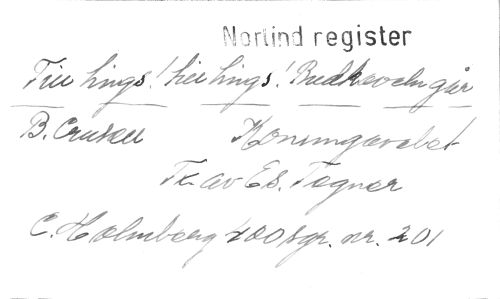 Nortind register
Till tings! till tings! Budkaveln går
B. Crusell Konungavalet
T. av Es. Tegnér
C. Holmberg 400 sgr. nr. 201